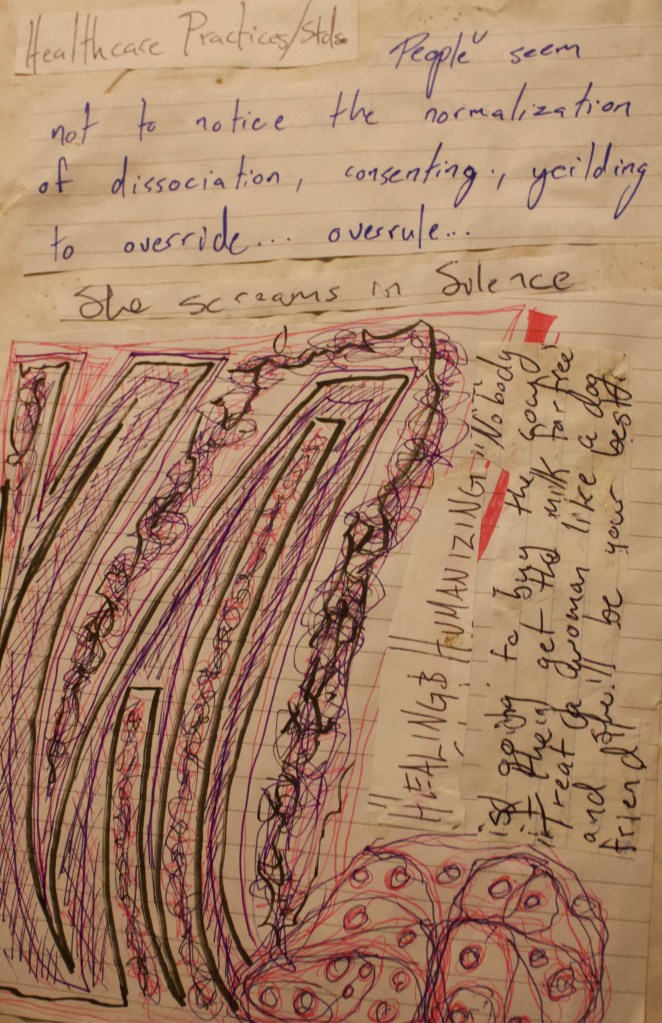 Healthcare Practices/Stds.
People seem
not to notice the normalization
of dissociation, consenting, yeilding
to override... overrule...
She screams in Silence
"HEALING & HUMANIZING"
"Nobody
is going to buy the cow
if they get the milk for free"
treat a woman like a dog
and she'll be your best
friend